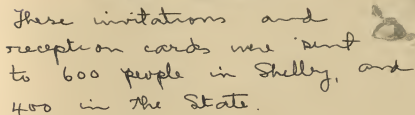 These invitations and
reception cards were sent
to 600 people in Shelby, and
400 in the State.